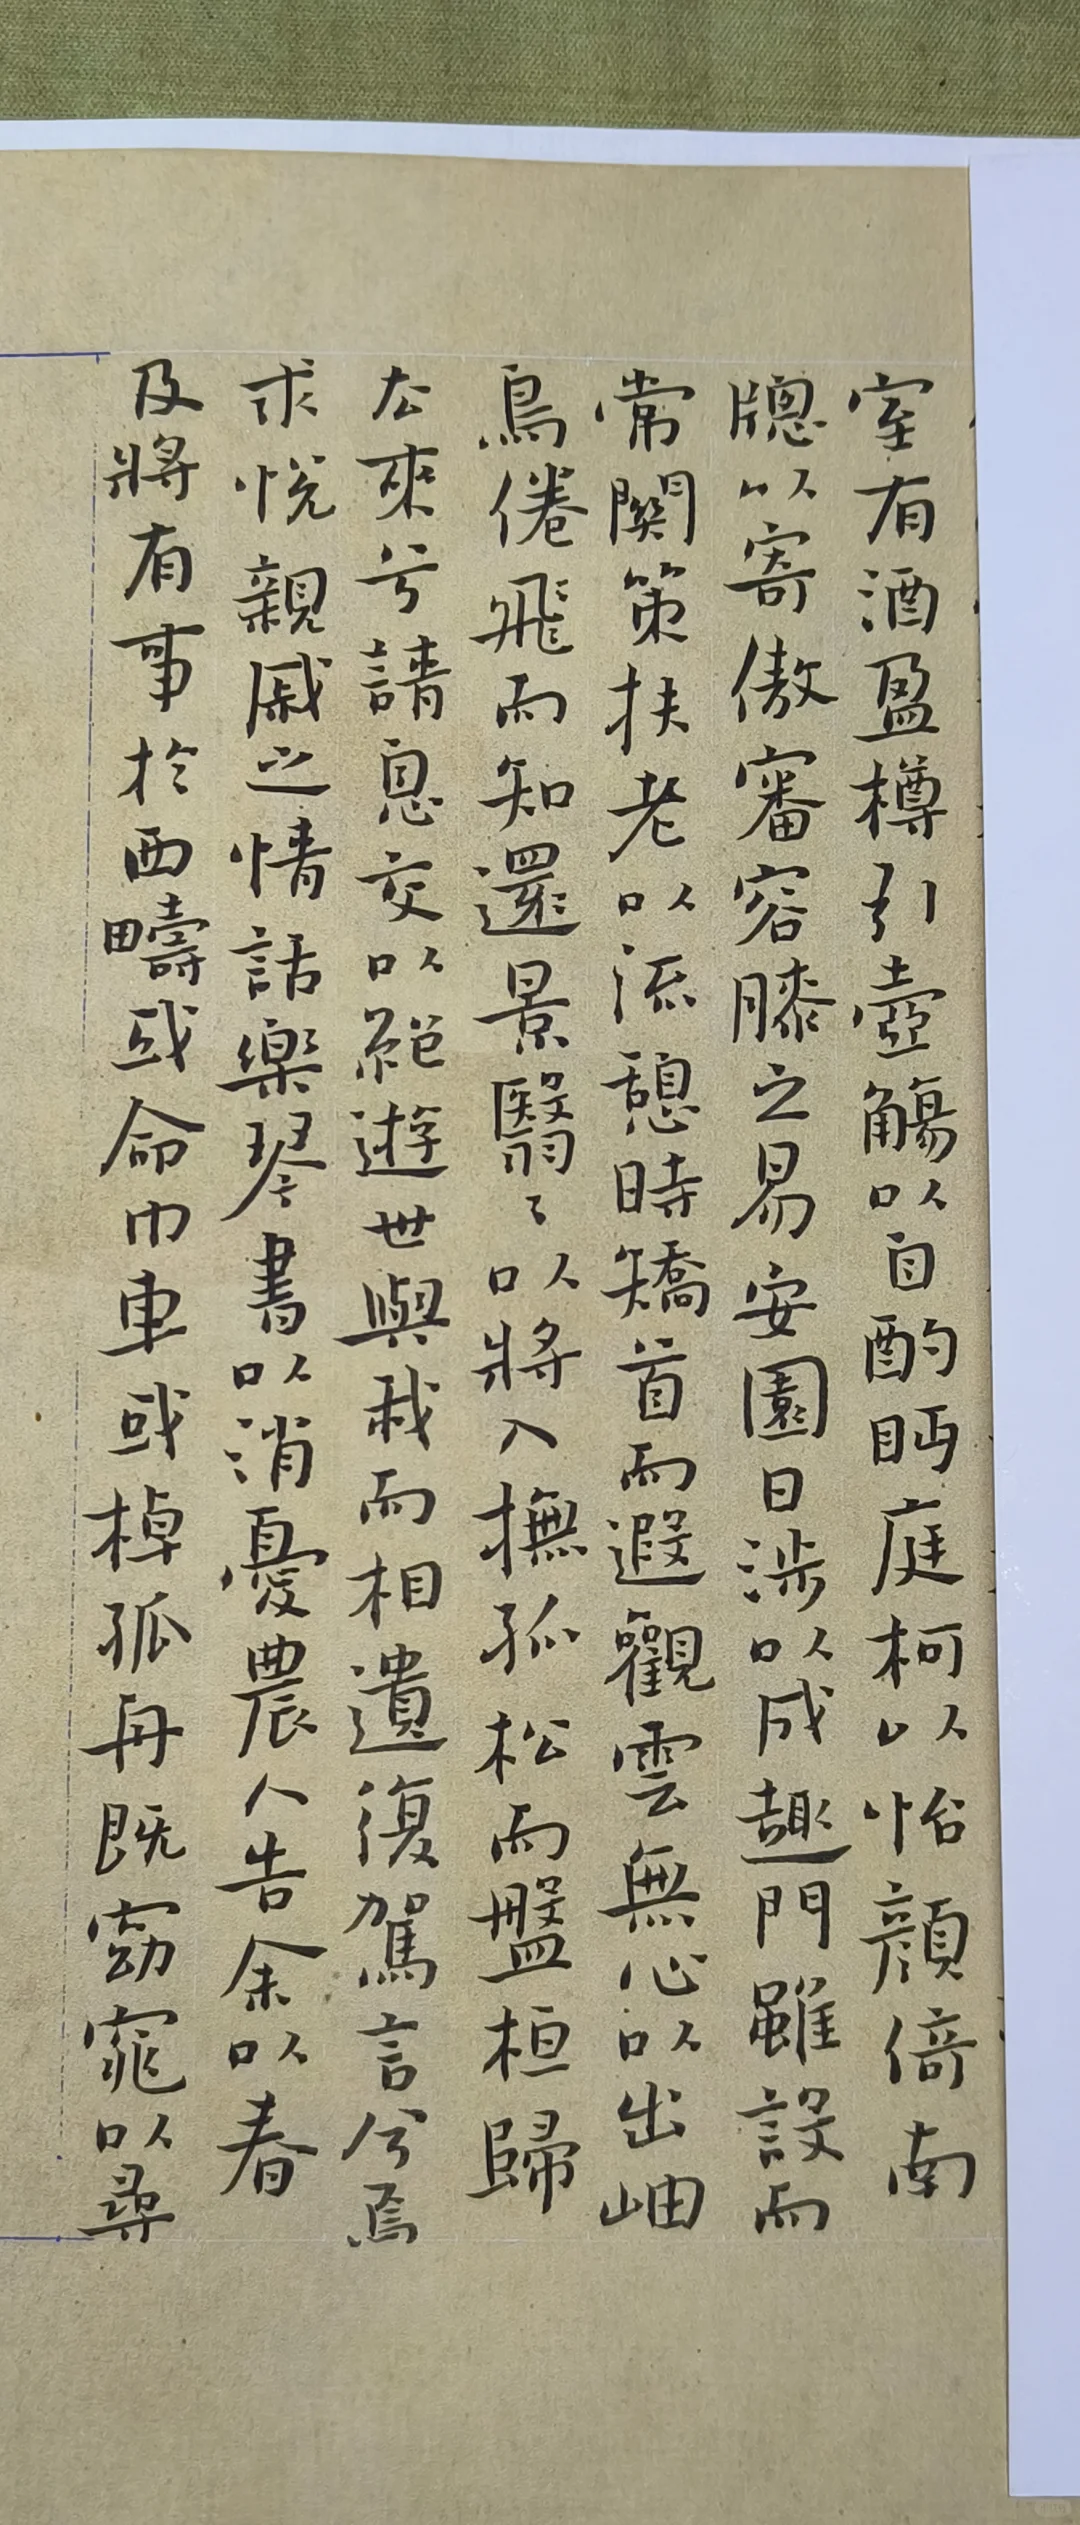 室有酒盈樽引壺觴以自酌眄庭柯以怡顏倚南
牎以寄傲審容膝之易安園日涉以成趣門雖設而
常關策扶老以流憩時矯首而遐觀雲無心以出岫
鳥倦飛而知還景翳々以將入撫孤松而盤桓歸
去來兮請息交以絕遊世與我而相遺復駕言兮焉
求悅親戚之情話樂琴書以消憂農人告余以春
及將有事於西疇或命巾車或棹孤舟既窈窕以尋